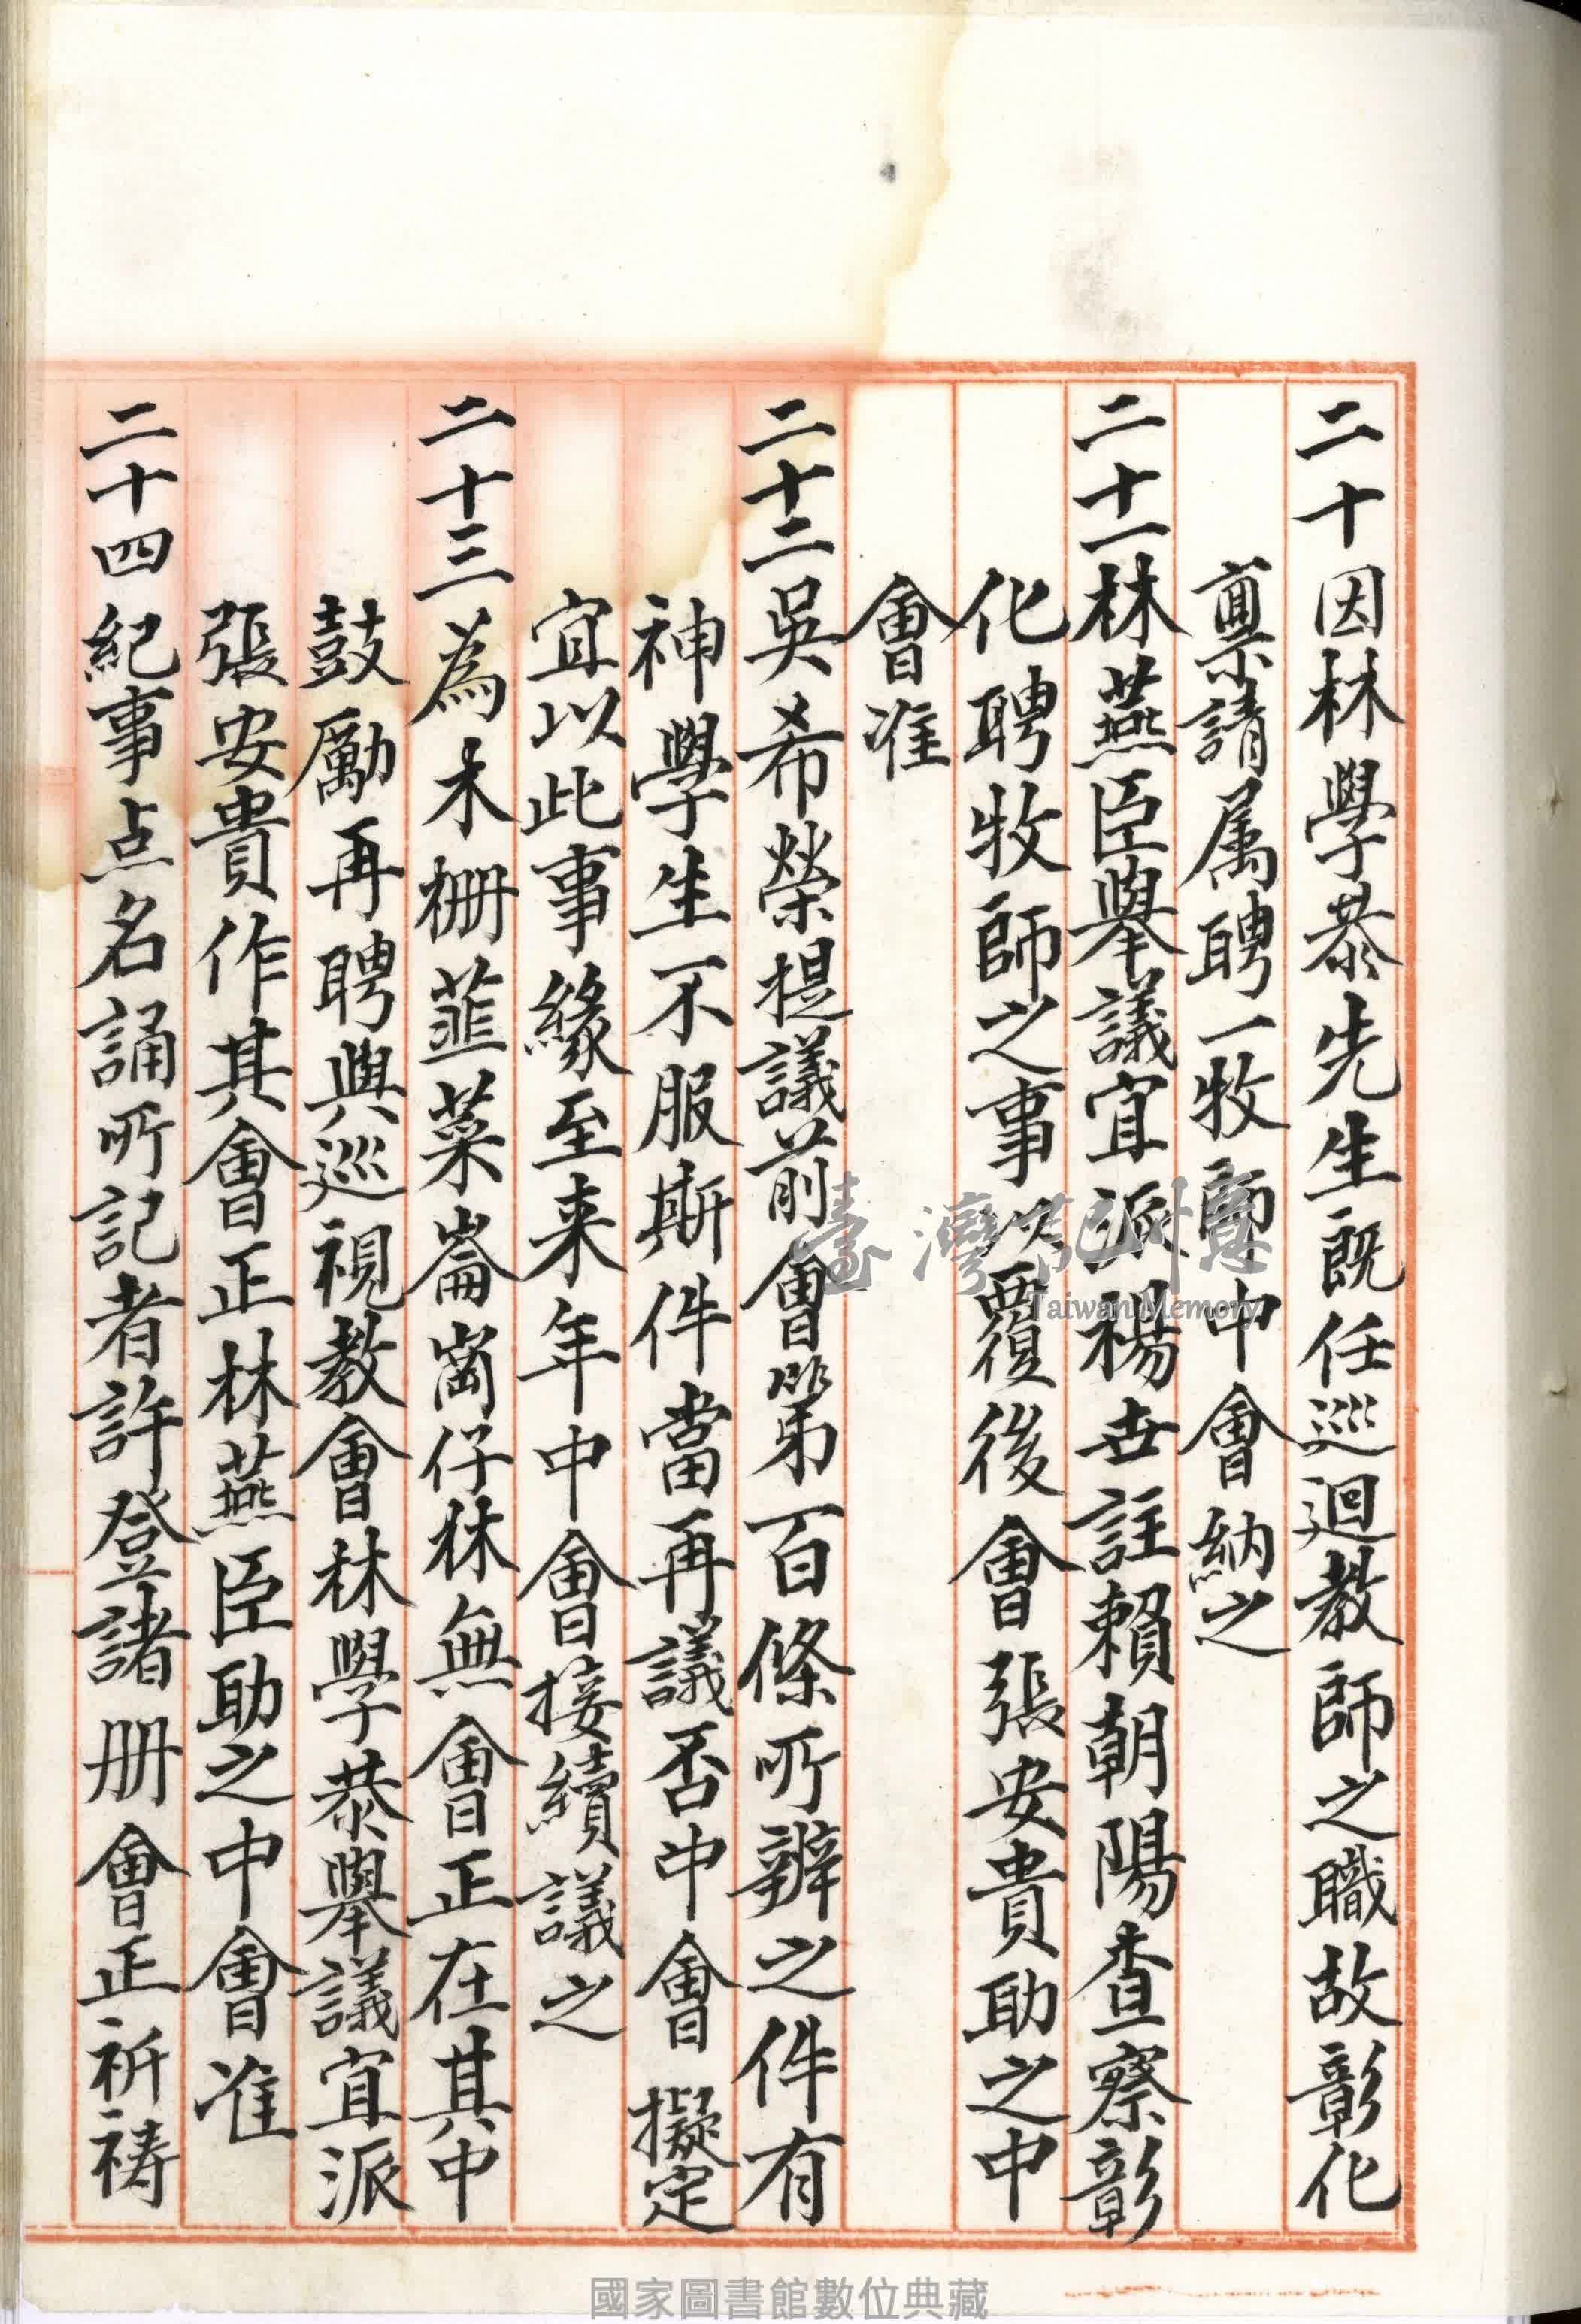 二十因林學恭先生既任巡迴教師之職故彰化
稟請属聘一牧師中會納之
二十一林燕臣舉議宜派楊世註賴朝陽查察彰
化聘牧師之事以覆後會張安貴助之中
會准
二十二吳希榮提議前會第一百條所辨之件有
神學生不服斯件當再議否中會擬定
宜以此事緣至来年中會接續議之
二十三為木柵韮菜崙崗仔林無會正在其中
鼓勵再聘與巡視教會林學恭舉議宜派
張安貴作其會正林燕臣助之中會准
二十四紀事点名誦所記者許登諸册會正祈祷
臺灣記憶
Taiwan Memory
國家圖書館數位典藏